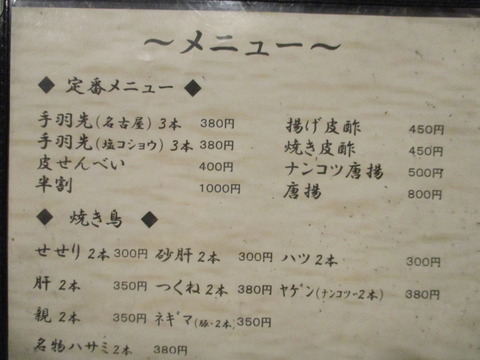 ～メニュー～
◆ 定番メニュー ◆
手羽先(名古屋) 3本 380円
手羽先(塩コショウ) 3本 380円
皮せんべい 400円
半割 1000円
揚げ皮酢 450円
焼き皮酢 450円
ナンコツ唐揚 500円
唐揚 800円
◆ 焼き鳥 ◆
せせり2本 300円 砂肝2本 300円 ハツ2本 300円
肝 2本 350円 つくね2本 380円 ヤゲン(ナンコツー2本) 380円
親 2本 350円 ネギマ(豚・2本) 350円
名物ハサミ2本 380円